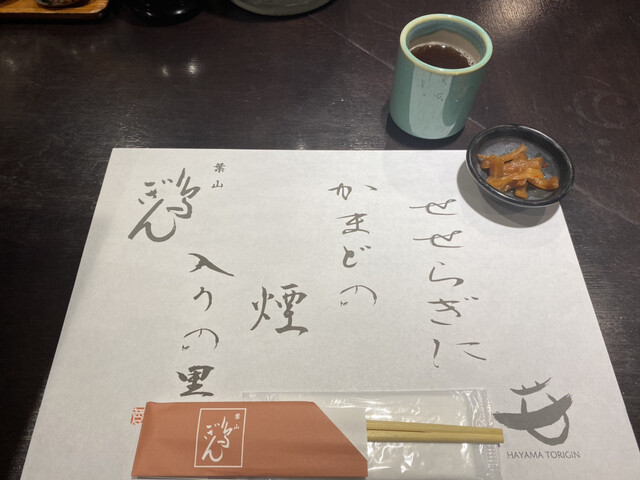 せせらぎに
かまどの
煙
入りの里
葉山
鶏ぎん
葉山
鶏ぎん
HAYAMA TORIGIN